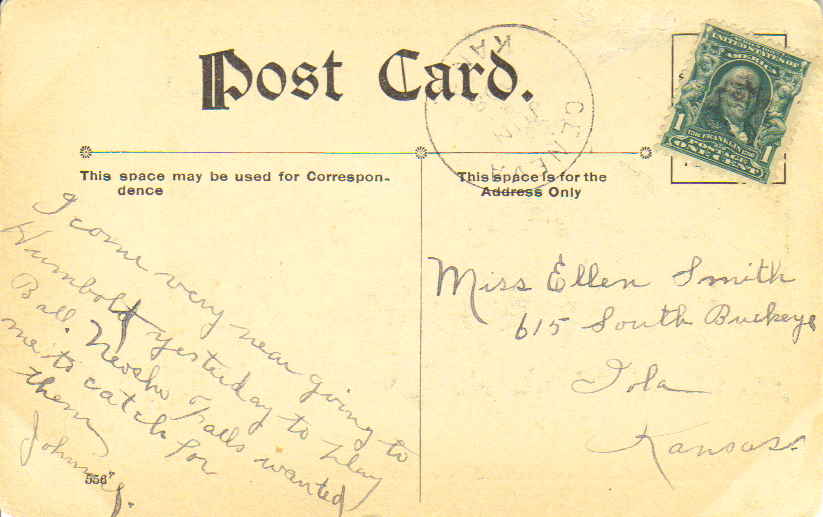 Post Card.
This space may be used for Correspon-
dence
This space is for the
Address Only
GENEVA
KAN
JUN
UNITED STATES OF
AMERICA
FRANKLIN
1 1
POSTAGE
ONE CENT
I come very near going to
Humboldt yesterday to play
Ball. Neosho Falls wanted
me to catch for
them
Johnny
556
Miss Ellen Smith
615 South Buckeye
Iola
Kansas